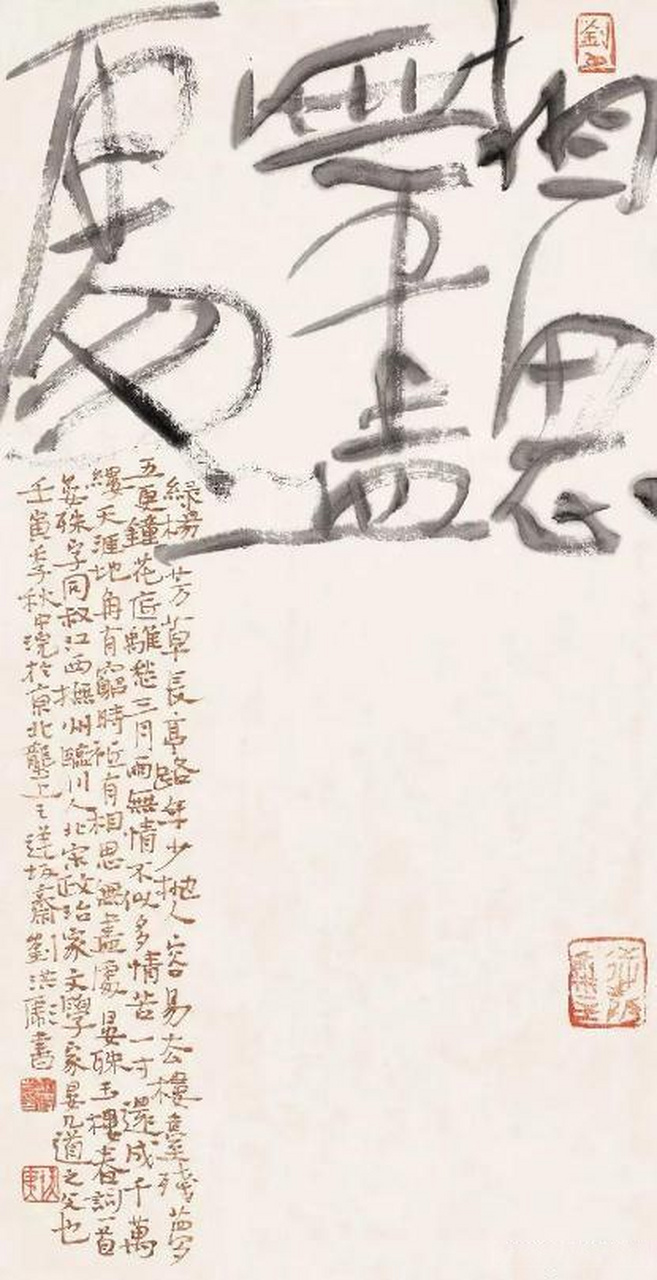 相思
無盡
處
綠楊芳草長亭路年少拋人容易去樓殘夢
五更鐘花底離愁三月雨無情不似多情苦一寸還成千萬
縷天涯地角有窮時祇有相思無盡處晏殊玉樓春詞一首
晏殊字同叔江西撫州臨川人北宋政治家文學家晏几道之父也
壬寅季秋中浣於京北壟上之逆坂齋劉洪彪書
劉